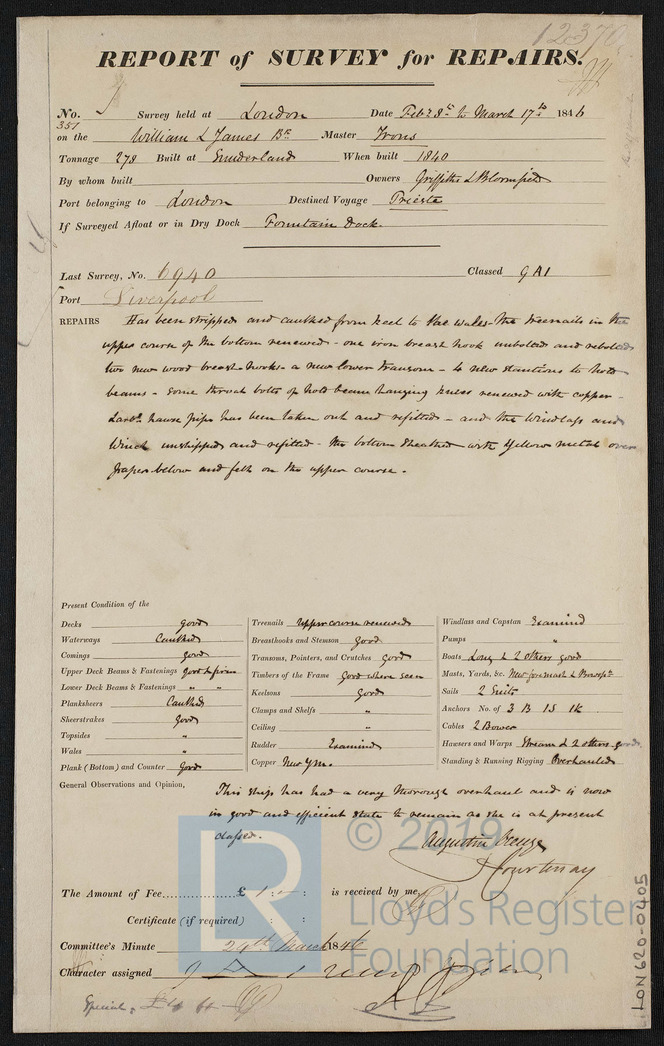 12370
REPORT of SURVEY for REPAIRS.
No. 351 Survey held at London Date Feby 3rd to March 17th 1846
on the William & James Bk Master Irons
Tonnage 278 Built at Sunderland When built 1840
By whom built Owners Griffiths & Bloomfield
Port belonging to London Destined Voyage Trieste
If Surveyed Afloat or in Dry Dock Fountain Dock.
Last Survey, No. 6940 Classed 9A1
Port Liverpool
REPAIRS Has been stripped and caulked from keel to the wales - the treenails in the
upper course of the bottom renewed - one iron breast hook unbolted and rebolted
two new wood breast hooks - a new lower transom - 4 new stantions to hold
beams - some throat bolts of hold beam hanging knees renewed with copper -
Larbd hawse pipe has been taken out and refitted - and the windlass and
winch unshipped and refitted - the bottom sheathed with yellow metal over
paper below and felt on the upper course.
Present Condition of the
Decks good
Waterways Caulked
Comings good
Upper Deck Beams & Fastenings good & firm
Lower Deck Beams & Fastenings " "
Planksheers Caulked
Sheerstrakes good
Topsides "
Wales "
Plank (Bottom) and Counter good
Treenails Upper course renewed
Breasthooks and Stemson good
Transoms, Pointers, and Crutches good
Timbers of the Frame good where seen
Keelsons good
Clamps and Shelfs "
Ceiling "
Rudder Examined
Copper New Ym.
Windlass and Capstan Examined
Pumps "
Boats Long & 2 others good
Masts, Yards, &c. New foremast & Bowspt
Sails 2 Suits
Anchors No. of 3 B 1S 1K
Cables 2 Bower
Hawsers and Warps Stream & 2 others good
Standing & Running Rigging Overhauled
General Observations and Opinion,
This ship has had a very thorough overhaul and is now
in good and efficient state to remain as she is at present
classed.
Augustin Creuze
Courtenay
The Amount of Fee £ 1 : - : is received by me,
Certificate (if required) : :
Committee's Minute 24th March 1846
Character assigned
Special,
© 2019
Lloyd's Register
Foundation
LR
LON620-0405